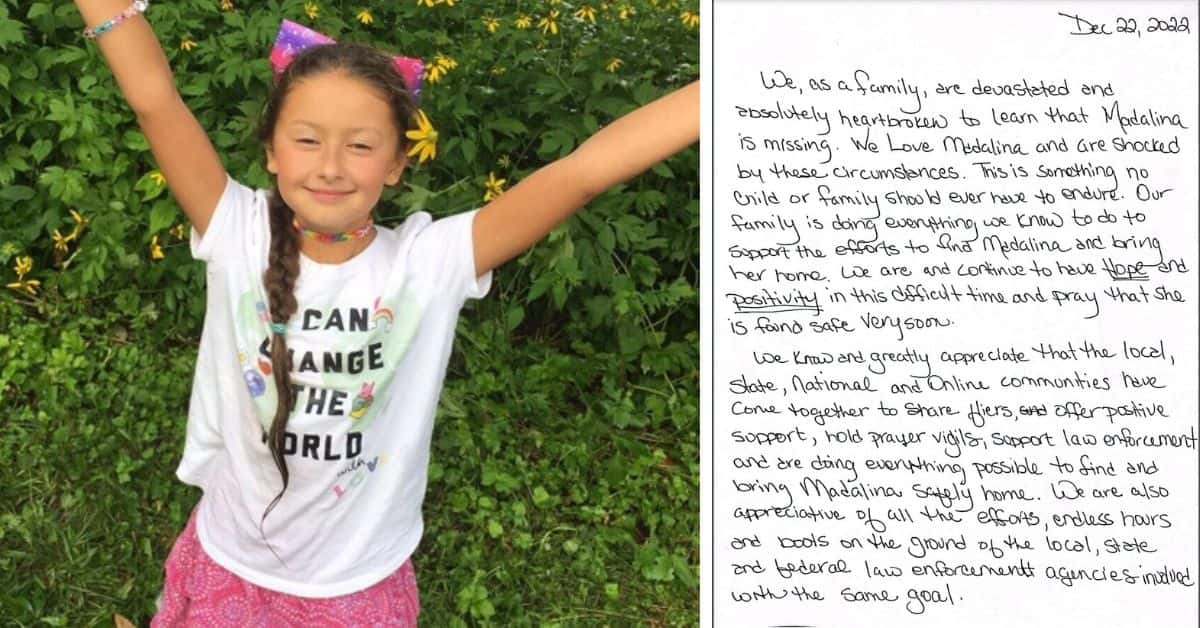 I CAN
CHANGE
THE
WORLD
with
Dec 22, 2022
We, as a family, are devastated and
absolutely heartbroken to learn that Madalina
is missing. We Love Madalina and are shocked
by these circumstances. This is something no
Child or family should ever have to endure. Our
family is doing everything we know to do to
support the efforts to find Madalina and bring
her home. We are and continue to have Hope and
positivity in this difficult time and pray that she
is found safe very soon.
We know and greatly appreciate that the local,
State, National and Online communities have
come together to share fliers, and offer positive
support, hold prayer vigils, support law enforcement
and are doing everything possible to find and
bring Madalina safely home. We are also
appreciative of all the efforts, endless hours
and boots on the ground of the local, State
and federal law enforcement agencies involved
with the same goal.